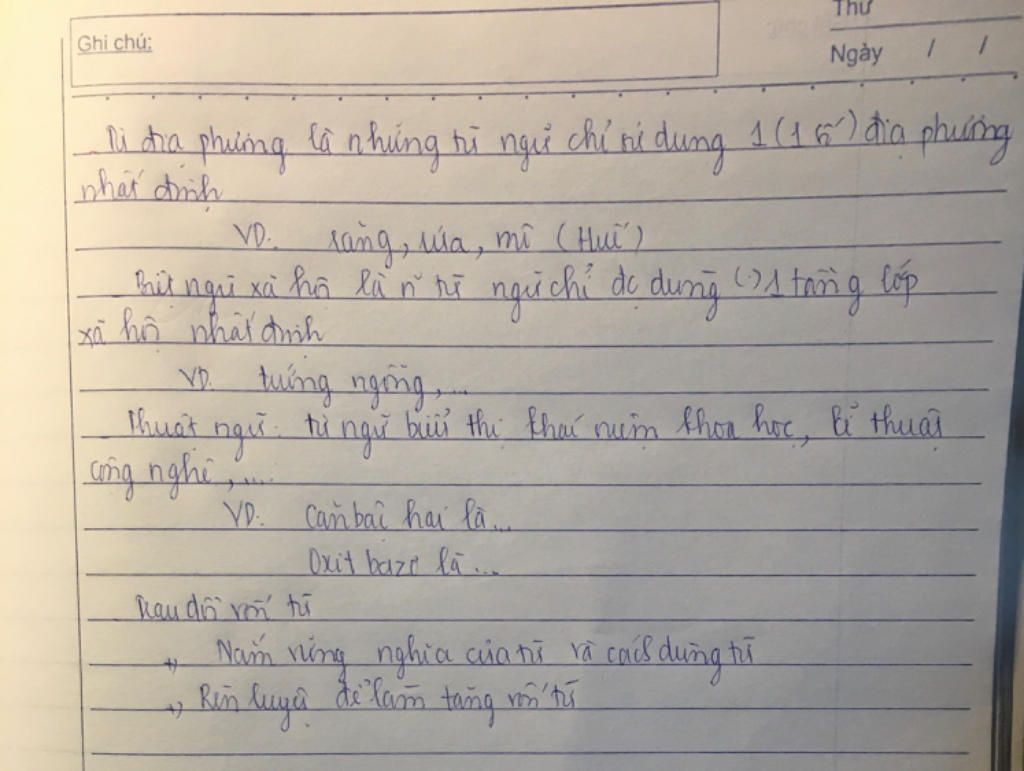 Thứ
Ghi chú:
Ngày / /
Từ địa phương là những từ ngữ chỉ sử dụng 1 (1 số) địa phương
nhất định
VD. răng, rứa, mi (Huế)
Biệt ngữ xã hội là ~ từ ngữ chỉ đc dùng (.) 1 tầng lớp
xã hội nhất định
VD. ngỗng,...
Thuật ngữ: từ ngữ biểu thị khái niệm khoa học, kĩ thuật
công nghệ,....
VD. Căn bậc hai là...
Oxit bazơ là...
Rau dồi vốn từ
+, Nắm vững nghĩa của từ và cách dùng từ
+, Rèn luyện để làm tăng vốn từ